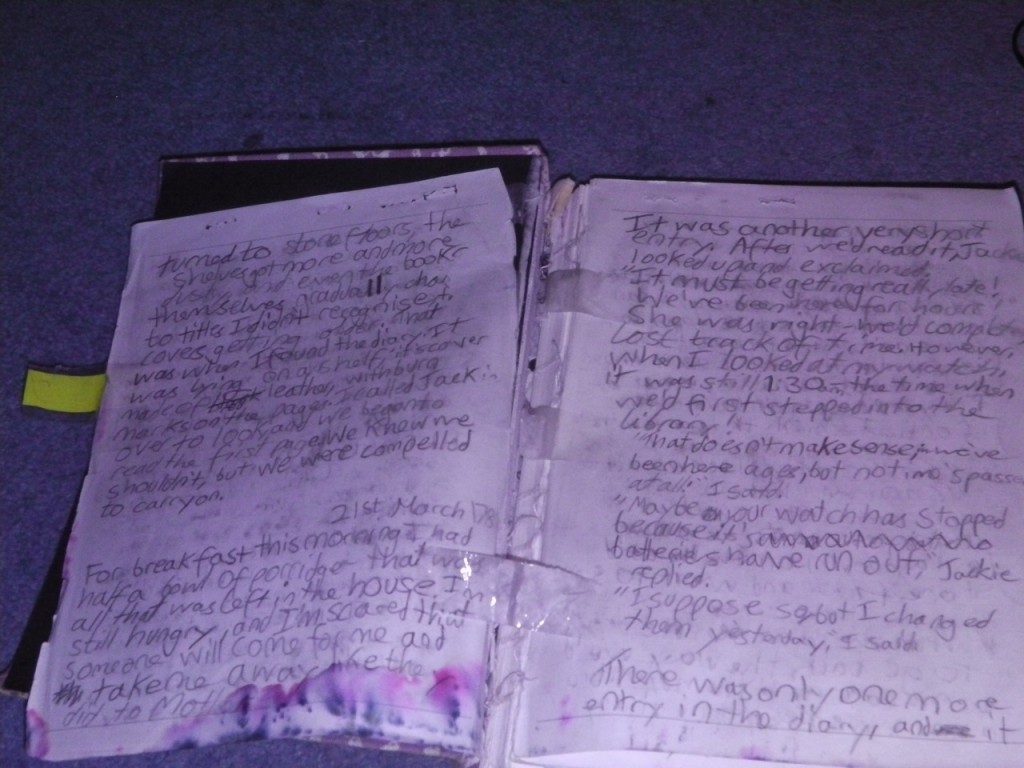 turned to stone floors, the
shelves got more and more
dusty and even the books
themselves gradually chan
to titles I didn't recognise t.
covers getting older. That
was when I found the diary. It
was lying on a shelf, it's cover
made of leather, with burn
marks on the pages. I called Jackie
over to look, and we began to
read the first page. We knew we
shouldn't, but we were compelled
to carry on.
21st March, 178
For breakfast this morning I had
half a bowl of porridge that was
all that was left in the house. I'm
still hungry, and I'm scared that
someone will come for me and
take me away like the
did to Moth
It was another very short
entry. After we'd read it, Jackie
looked up and exclaimed,
"It must be getting really late!
We've been here for hours
She was right - we'd completely
lost track of time. However,
when I looked at my watch,
it was still 1:30 - the time when
we'd first stepped into the
library!
"That doesn't make sense; we've
been here ages, but no time's passed
at all!" I said.
"Maybe your watch has stopped
because it's
batteries have run out," Jackie
replied.
"I suppose so, but I changed
them yesterday," I said.
There was only one more
entry in the diary, and it